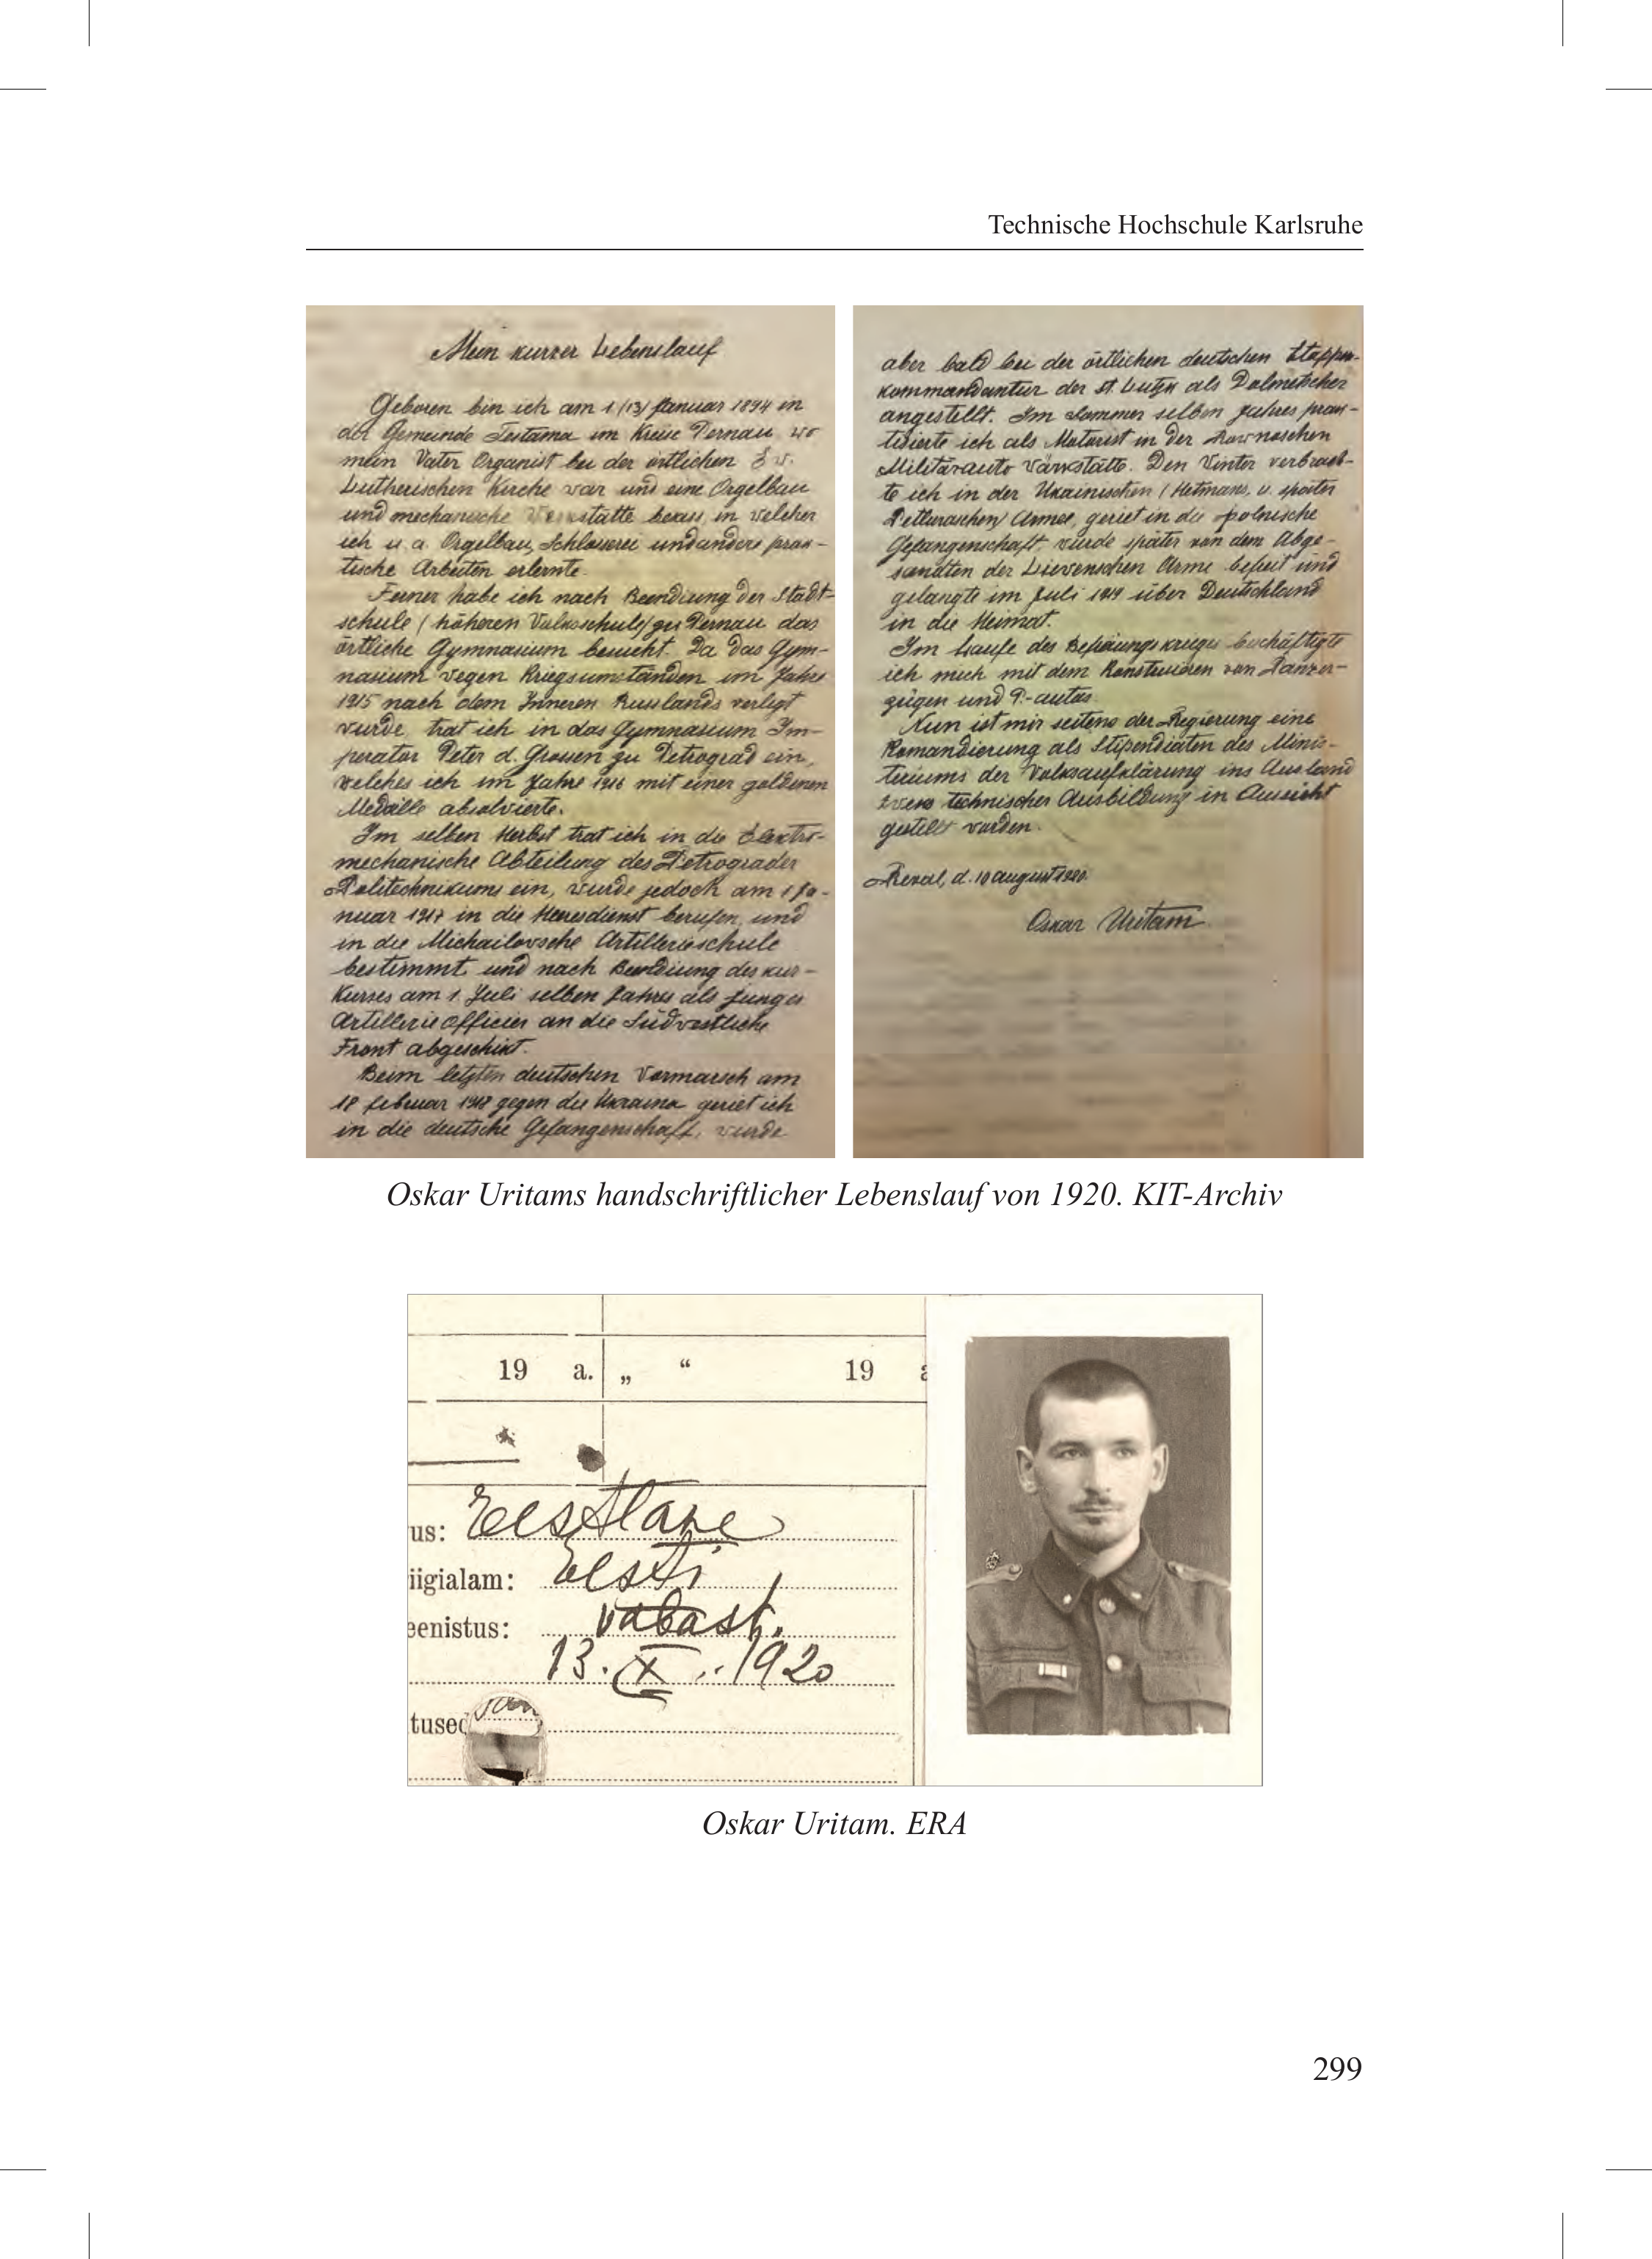 Technische Hochschule Karlsruhe
Mein kurzer Lebenslauf
Geboren bin ich am 1/(13) Januar 1894 in
der Gemeinde Testama im Kreise Pernau, wo
mein Vater Organist bei der örtlichen Ev.
Lutherischen Kirche var und eine Orgelbau
und mechanische Verkstätte besass, in velcher
ich u. a. Orgelbau, Schlosserei und andere prak-
tische Arbeiten erlernte.
Ferner habe ich nach Beendiung der Stadt-
schule (höheren Volksschule) zu Pernau das
örtliche Gymnasium besucht. Da das Gym-
nasium vegen Kriegsumständen im Jahre
1915 nach dem Inneren Russlands verlegt
vurde, trat ich in das Gymnasium Im-
perator Peter d. Grossen zu Petrograd ein,
velches ich im Jahre 1916 mit einer goldenen
Medaille absolvierte.
Im selben Herbst trat ich in die Elektro-
mechanische Abteilung des Petrograder
Politechnikums ein, vurde jedoch am 1 Ja-
nuar 1917 in die Heeresdienst berufen, und
in die Michailovsche Artillerieschule
bestimmt und nach Beendiung des kur-
Kurses am 1. Juli selben Jahres als junger
Artillerieofficier an die Südvestliche
Front abgeschikt.
Beim letzten deutschen Vormarsch am
18 Februar 1918 gegen die Ukraina geriet ich
in die deutsche Gefangenschaft, vurde
aber bald bei der örtlichen deutschen Etappen-
kommandantur der St. Lutzk als Dolmetscher
angestellt. Im Sommer selben Jahres prak-
tisierte ich als Motorist in der Rovnoschen
Militärauto Värkstätte. Den Vinter verbrach-
te ich in der Ukainischen (Hetmans, u. später
Petluraschen) Armee, geriet in die polnische
Gefangenschaft, vurde später von dem Abge-
sandten der Lievenschen Arme befreit und
gelangte im Juli 1919 über Deutschland
in die Heimat.
Im Laufe des Befreiungskrieges beschäftigte
ich mich mit dem Konstruieren von Panzer-
zügen und P.-autos.
Nun ist mir seitens der Regierung eine
Komandierung als Stipendiaten des Minis-
teriums der Volksaufklärung ins Ausland
zvecks technischer Ausbildung in Aussicht
gestellt vorden.
Reval, d. 10 august 1920.
Oskar Uritam
Oskar Uritams handschriftlicher Lebenslauf von 1920. KIT-Archiv
19 a. „ “ 19 a
us: Eestlane
iigialam: Eesti
eenistus: vabast.
13. X. 1920
tused
Oskar Uritam. ERA
299